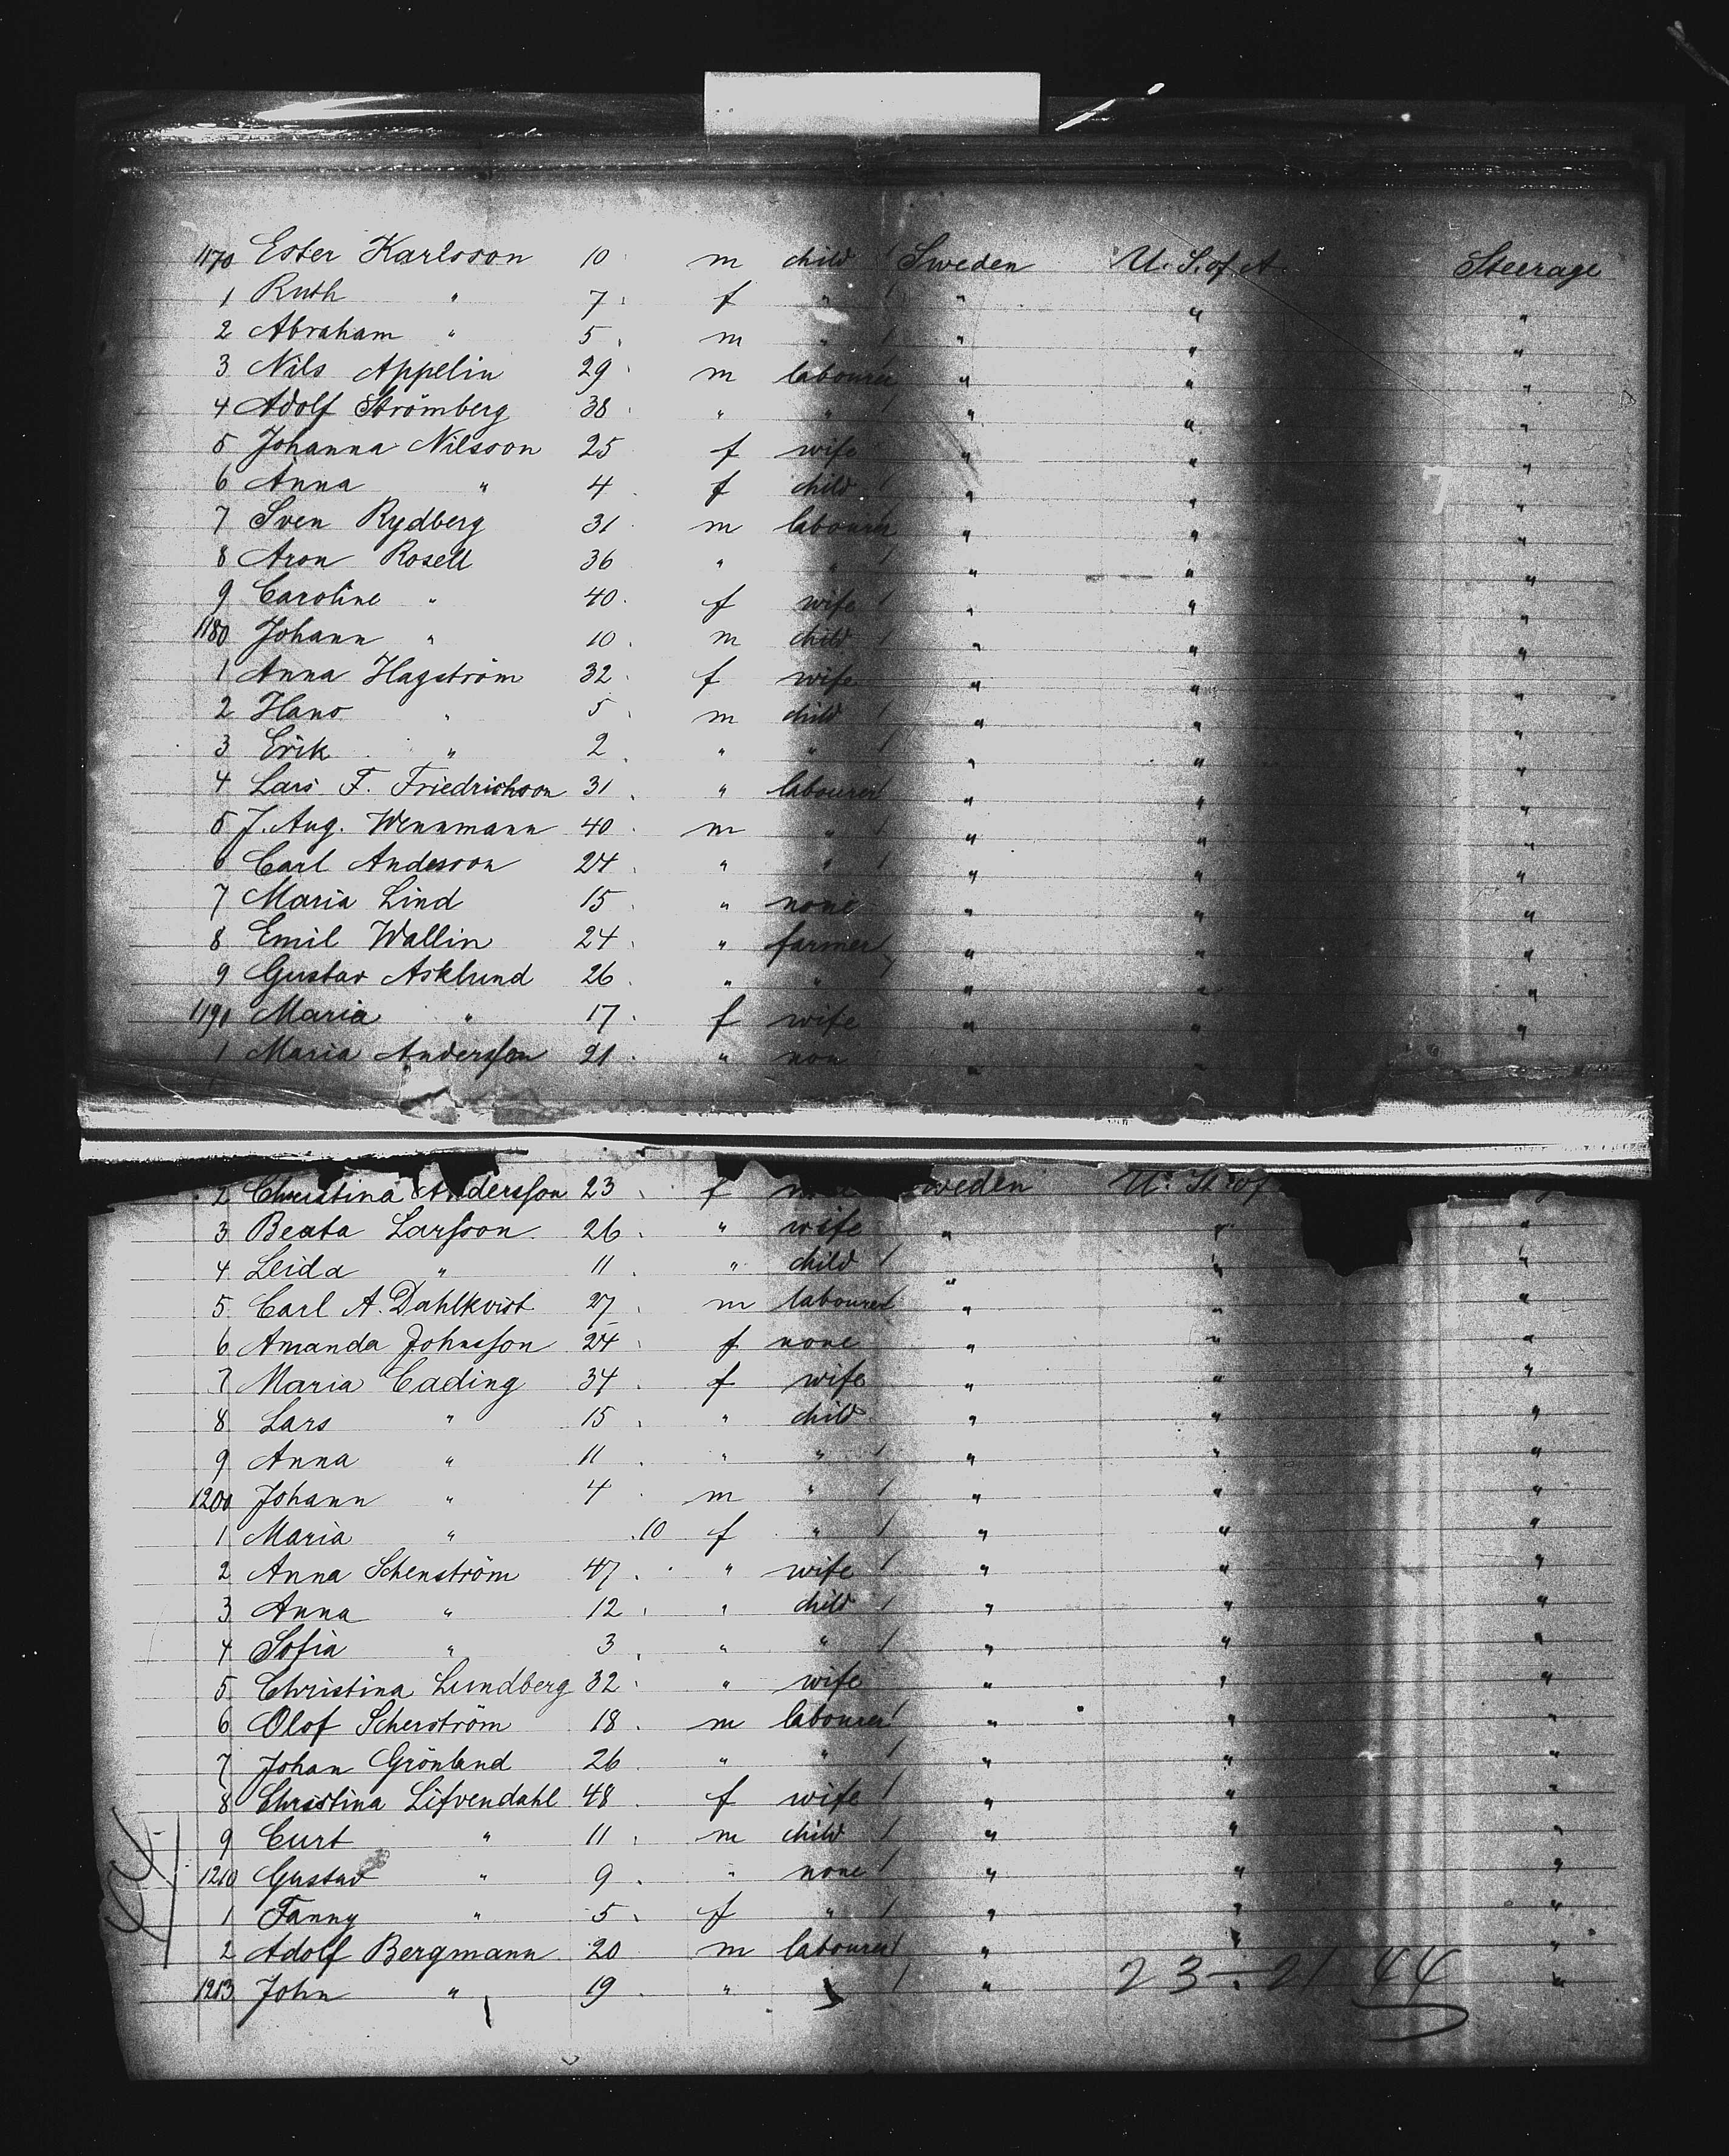 1170 Ester Karlsson 10 m child / Sweden U. S. of A. Steerage
1 Ruth " 7 f " / " " "
2 Abraham " 5 m " / " " "
3 Nils Appelin 29 m labourer " " "
4 Adolf Strömberg 38 " " / " " "
5 Johanna Nilsson 25 f wife " " "
6 Anna " 4 f child / " " "
7 Sven Rydberg 31 m labourer " " "
8 Aron Rosell 36 " " / " " "
9 Caroline " 40 f wife / " " "
1180 Johann " 10 m child / " " "
1 Anna Hagström 32 f wife " " "
2 Hans " 5 m child / " " "
3 Erik " 2 " " / " " "
4 Lars F. Friedrichson 31 " labourer / " " "
5 J. Aug. Wennmann 40 m " / " " "
6 Carl Andesson 24 " " / " " "
7 Maria Lind 15 " none " " "
8 Emil Wallin 24 " farmer / " " "
9 Gustav Asklund 26 " " / " " "
1190 Maria " 17 f wife " " "
1 Maria Andersson 21 " non " "
2 Christina Andersson 23 f weden U. St. of
3 Beata Larsson 26 " wife " " "
4 Leida " 11 " child / " " "
5 Carl A. Dahlkvist 27 m labourer / " " "
6 Amanda Johnsson 24 f none " " "
7 Maria Cading 34 f wife " " "
8 Lars " 15 " child " " "
9 Anna " 11 " " / " " "
1200 Johann " 4 m " / " " "
1 Maria " .10 f " / " " "
2 Anna Schenström 47 " wife / " " "
3 Anna " 12 " child / " " "
4 Sofia " 3 " " / " " "
5 Christina Lundberg 32 " wife " " "
6 Olof Scherström 18 m labourer / " " "
7 Johan Grönlund 26 " " / " " "
8 Christina Lifvendahl 48 f wife / " " "
9 Curt " 11 m child / " " "
1210 Gustav " 9 " none / " " "
1 Fanny " 5 f " / " " "
2 Adolf Bergmann 20 m labourer / " " "
1213 John " 19 " " / " " "
23 — 21 44